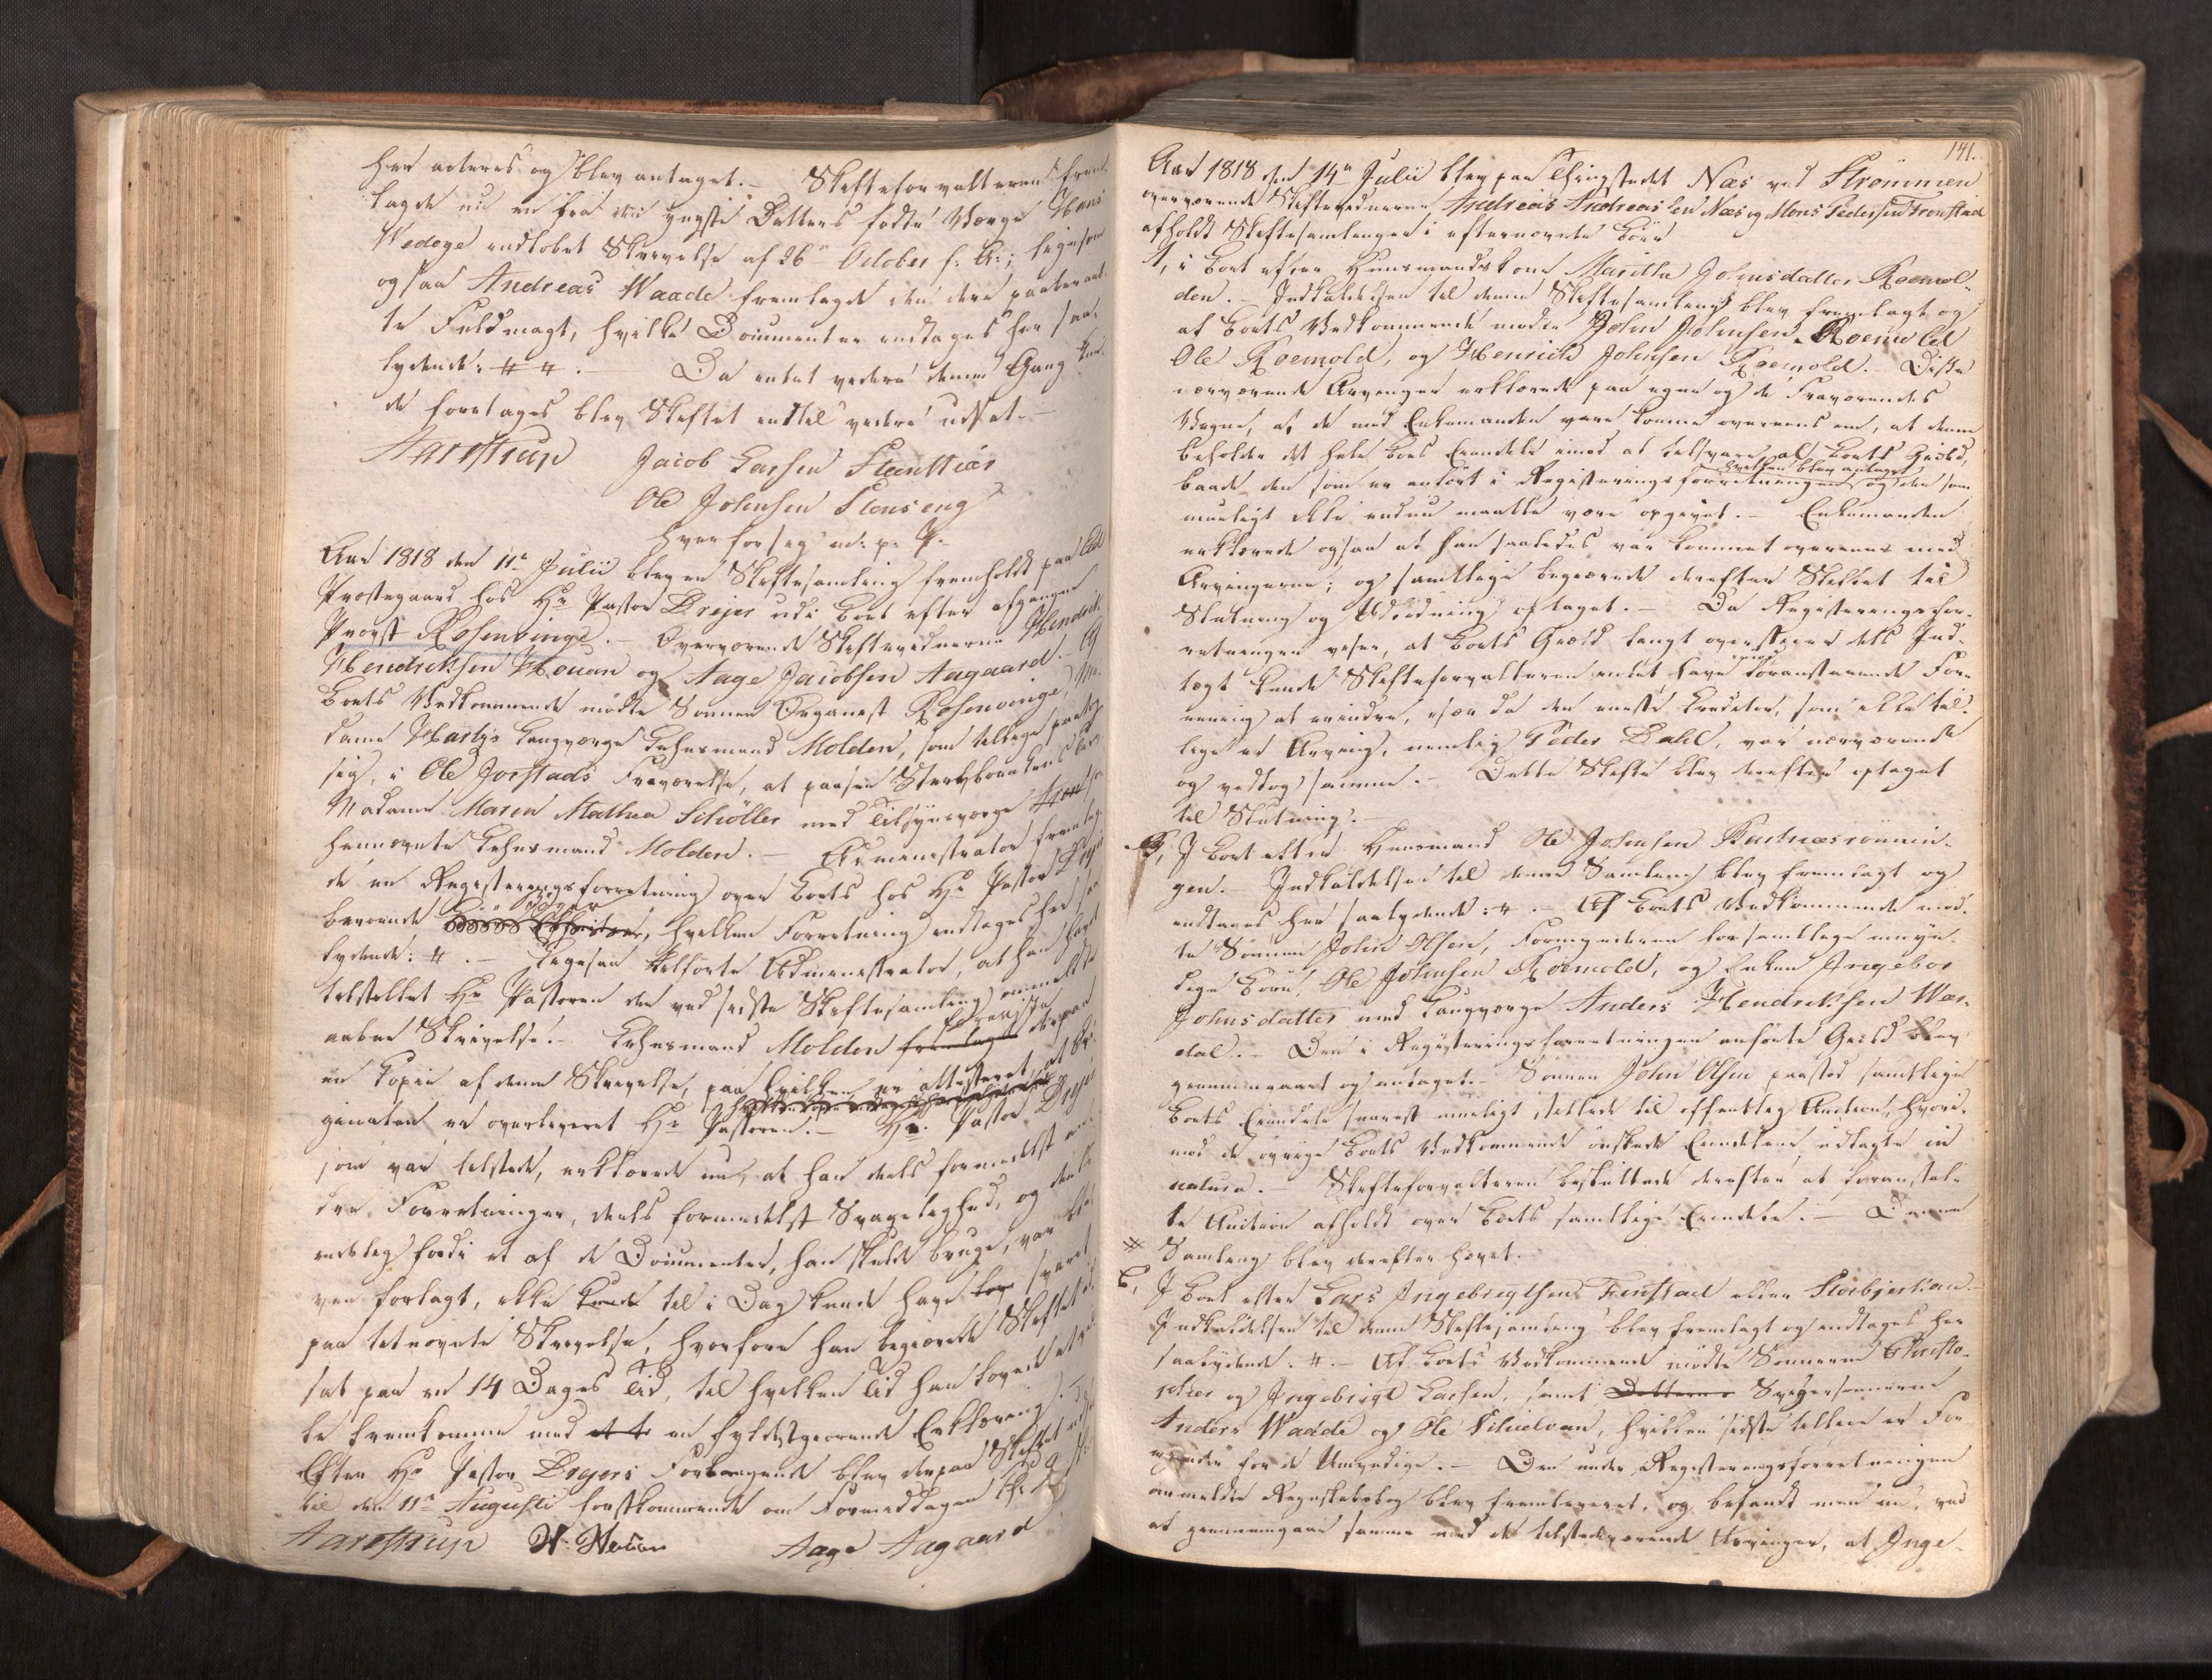 her acteres og blev antaget. – Skifteforvalteren frem-
lagde nu en fra den yngste Datters fødte Værge Hans
Wedege indløbet Skrivelse af 26de October f: A:; ligesom
ogsaa Andreas Waade fremlagde den ham paaberaab-
te Fuldmagt, hvilke Documenter indtages her saa-
lydende: # #. – Da intet videre denne Gang kun-
de foretages blev Skiftet indtil videre udsat. –
Aarestrup Jacob Larsen
Ole Johnsen Stenseng
hver for sig m: p: P.
Aar 1818 den 11te Julii blev en Skiftesamling fremholdt paa
Præstegaard hos Hr Pastor Drejer udi Boet efter afgangne
Provst Rosenvinge. – Overværende Skiftevidnerne Hendrik
Hendriksen Houan og Aage Jacobsen Aagaard. – Af
Boets Vedkommende mødte Sønnen Organist Rosenvinge, Ma-
dame Hartys Laugværge Lehnsmand Molden, som tillige paatog
sig, i Ole Jorstads Fraværelse, at paasee Sterfboenkens
Madame Maren Mathea Schøller med Tilsynsværge
henævnte Lehnsmand Molden. – Administrator fremlag-
de en Registeringsforretning over Boets hos Hr Pastor Drejer
beroende Bøger, hvilken Forretning indtages her saa-
lydende: #. – Ligesaa tilførte Administrator, at han havde
tilstillet Hr Pastoren den ved sidste Skiftesamling ommeldte
aabne Skrivelse. – Lehnsmand Molden foreviste derpaa
en Copie af denne Skrivelse, paa hvilken er attesteret, at Ori-
ginalen er overleveret Hr Pastoren. – Hr. Pastor Drejer
som var tilstede, erklærede nu, at han deels formedelst an-
dre Forretninger, deels formedelst Svagelighed, og deels
endelig fordi et af de Documenter, han skulde bruge, var ble-
ven forlagt, ikke til i Dag kunde have svaret
paa bemævnte Skrivelse, hvorfore han begiærede Skiftet ud-
sat paa en 14 Dages Tid, til hvilken Tid han lovede at vil-
le fremkomme med en fyldestgiørende Erklæring. –
Efter Hr Pastor Drejers Forlangende blev derpaa Skiftet udsat
til den 11te Augusti førstkommende om Formiddagen Kl. 9
Aarestrup H. Houan Aage Aagaard
141.
Aar 1818 den 14de Julii blev paa Thingstedet Næs ved Strømmen
overværende Skiftevidnerne Andreas Andreassen Næs og Mons Pedersen Tronstad
afholdt Skiftesamlinger i efternævnte Boer
A, i Boet efter Huusmandskone Maritha Johnsdatter Roemol-
den. – Indkaldelsen til denne Skiftesamling blev fremlagt og
af Boets Vedkommende mødte John Johnsen Roemold
Ole Roemold, og Henrich Johnsen Roemold. – Disse
nærværende Arvinger erklærede paa egne og de Fraværendes
Vegne, at de med Enkemanden vare komne overeens om, at denne
beholder det hele Boes Eiendele imod at tilsvare al Boets Giæld,
hvilken blev antaget
baade den som er anført i Registeringsforretningen og den som
mueligt ikke endnu maatte være opgivet. – Enkemanden
erklærede ogsaa at han saaledes var kommet overeens med
Arvingerne; og samtlige begiærede derefter Skiftet til
Slutning og Udlodning optaget. – Da Registeringsfor-
retningen viser, at Boets Giæld langt overstiger dets Ind-
tægt kunde Skifteforvalteren intet have imod foranstaaende For-
ening at erindre, især da den eneste Creditor, som ikke til-
lige er Arving, nemlig Peder Dahl, var nærværende
og vedtog samme. – Dette Skifte blev derefter optaget
til Slutning. –
B, I Boet efter Huusmand Ole Johnsen Rustnæsrønnin-
gen. – Indkaldelsen til denne Samling blev fremlagt og
indtages her saalydende: #. – Af Boets Vedkommende mød-
te Sønnen John Olsen, Formynderen for samtlige umyn-
dige Børn, Ole Johnsen Roemold, og Enken Ingebor
Johnsdatter med Laugværge Anders Hendriksen Wær-
dal. – Den i Registeringsforretningen anførte Giæld blev
giennemgaaet og antaget. – Sønnen John Olsen paastod samtlige
Boets Eiendele snarest mueligt stillede til offentlig Auction, hvori-
mod de øvrige Boets Vedkommende ønskede Eiendelene udlagte in
natura. – Skifteforvalteren besluttede derefter at foranstal-
te Auction afholdt over Boets samtlige Eiendele. – Denne
Samling blev derefter hævet.
C, I Boet efter Lars Ingebrigtsen Tuustad eller Storbjerkan. –
Indkaldelsen til denne Skiftesamling blev fremlagt og indtages her
saalydende: #. – Af Boets Vedkommende mødte Sønnerne Christo-
pher og Ingebrigt Larsen, samt Svigersønnerne
Anders Waade og Ole, hvilken sidste tillige er For-
mynder for de Umyndige. – Den under Registeringsforretningen
anmeldte Regnskabsbog blev fremleveret, og befandt man nu, ved
at giennemgaae samme med de tilstedeværende Arvinger, at Inge-